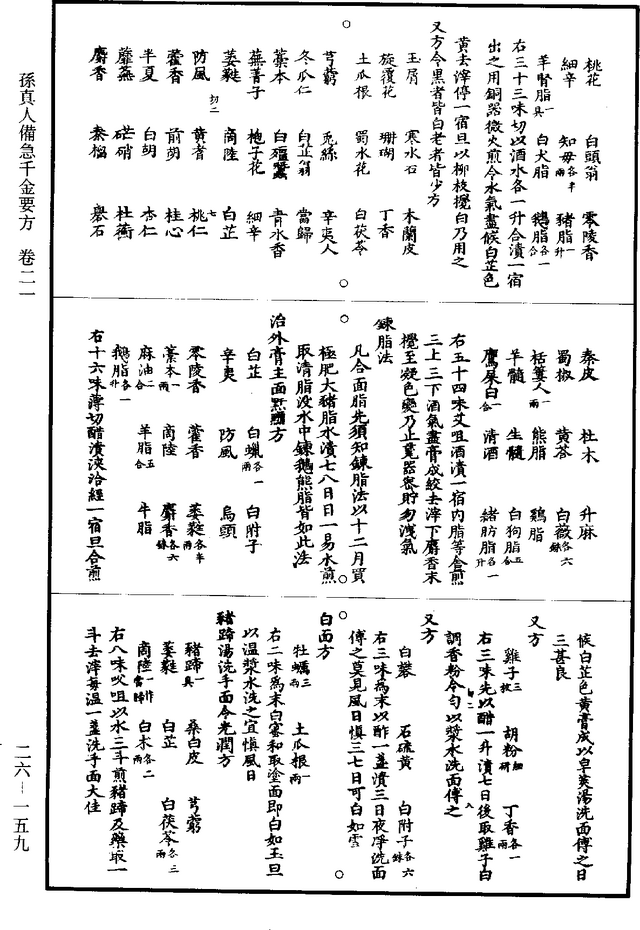 孫真人備急千金要方　卷二一
桃花　白頭翁　零陵香
細辛　知毋各半兩　豬脂一升
羊腎脂一具　白犬脂　鵝脂各一合
右三十三味切以酒水各一升合漬一宿
出之用銅器微火煎令水氣盡候白芷色
黃去滓停一宿旦以柳枝攪白乃用之
又方令黑者皆白老者皆少方
玉屑　寒水石　木蘭皮
旋覆花　珊瑚　丁香
土瓜根　蜀水花　白茯苓
芎藭　兎絲　辛夷人
冬瓜仁　白芷　當歸
藁本　白殭蠶　青木香
蕪菁子　梔子花　細辛
萎蕤　商陸　白芷
防風　黃耆　桃仁
藿香　前胡　桂心
半夏　白胡　杏仁
蘼蕪　芒硝　杜蘅
麝香　秦椒　礜石
秦皮　杜木　升麻
蜀椒　黃芩　白薇各六銖
栝蔞人一兩　熊脂　鷄脂
羊髓　生髓　白狗脂五合
鷹屎白一合　清酒　緒肪脂各一升
右五十四味㕮咀酒漬一宿內脂等合煎
三上三下酒氣盡膏成絞去滓下麝香末
攪至凝色變乃止甆器密貯勿洩氣
鍊脂法
凡合面脂先須知鍊脂法以十二月買
極肥大豬脂水漬七八日日一易水煎
取清脂沒水中鍊鵝熊脂皆如此法
治外膏主面䵟䵳方
白芷　白蠟各一兩　白附子
辛夷　防風　烏頭
零陵香　藿香　萎蕤各半兩
藁本一兩　商陸　麝香各六銖
麻油二合　羊脂五合　牛脂
鵝脂各一升
右十六味薄切醋漬浹洽經一宿旦合煎
候白芷色黃膏成以皁莢湯洗面傅之日
三甚良
又方
雞子三枚　胡粉細研　丁香各一兩
右三味先以醋一升漬七日後取雞子白
調香粉令勻以漿水洗面傅之
又方
白礬　石硫黃　白附子各六銖
右三味為末以酢一盞漬三日夜淨洗面
傅之莫見風日慎三七日可白如雪
白面方
牡蠣三兩　土瓜根一兩
右二味為末白蜜和取塗面即白如玉旦
以溫漿水洗之宜慎風日
豬蹄湯洗手面令光潤方
豬蹄一具　桑白皮　芎藭
萎蕤　白芷　白茯苓各三兩
商陸一作當歸　白木各二兩
右八味㕮咀以水三斗煎豬蹄及藥取一
斗去滓每溫一盞洗手面大佳
二六—一五九